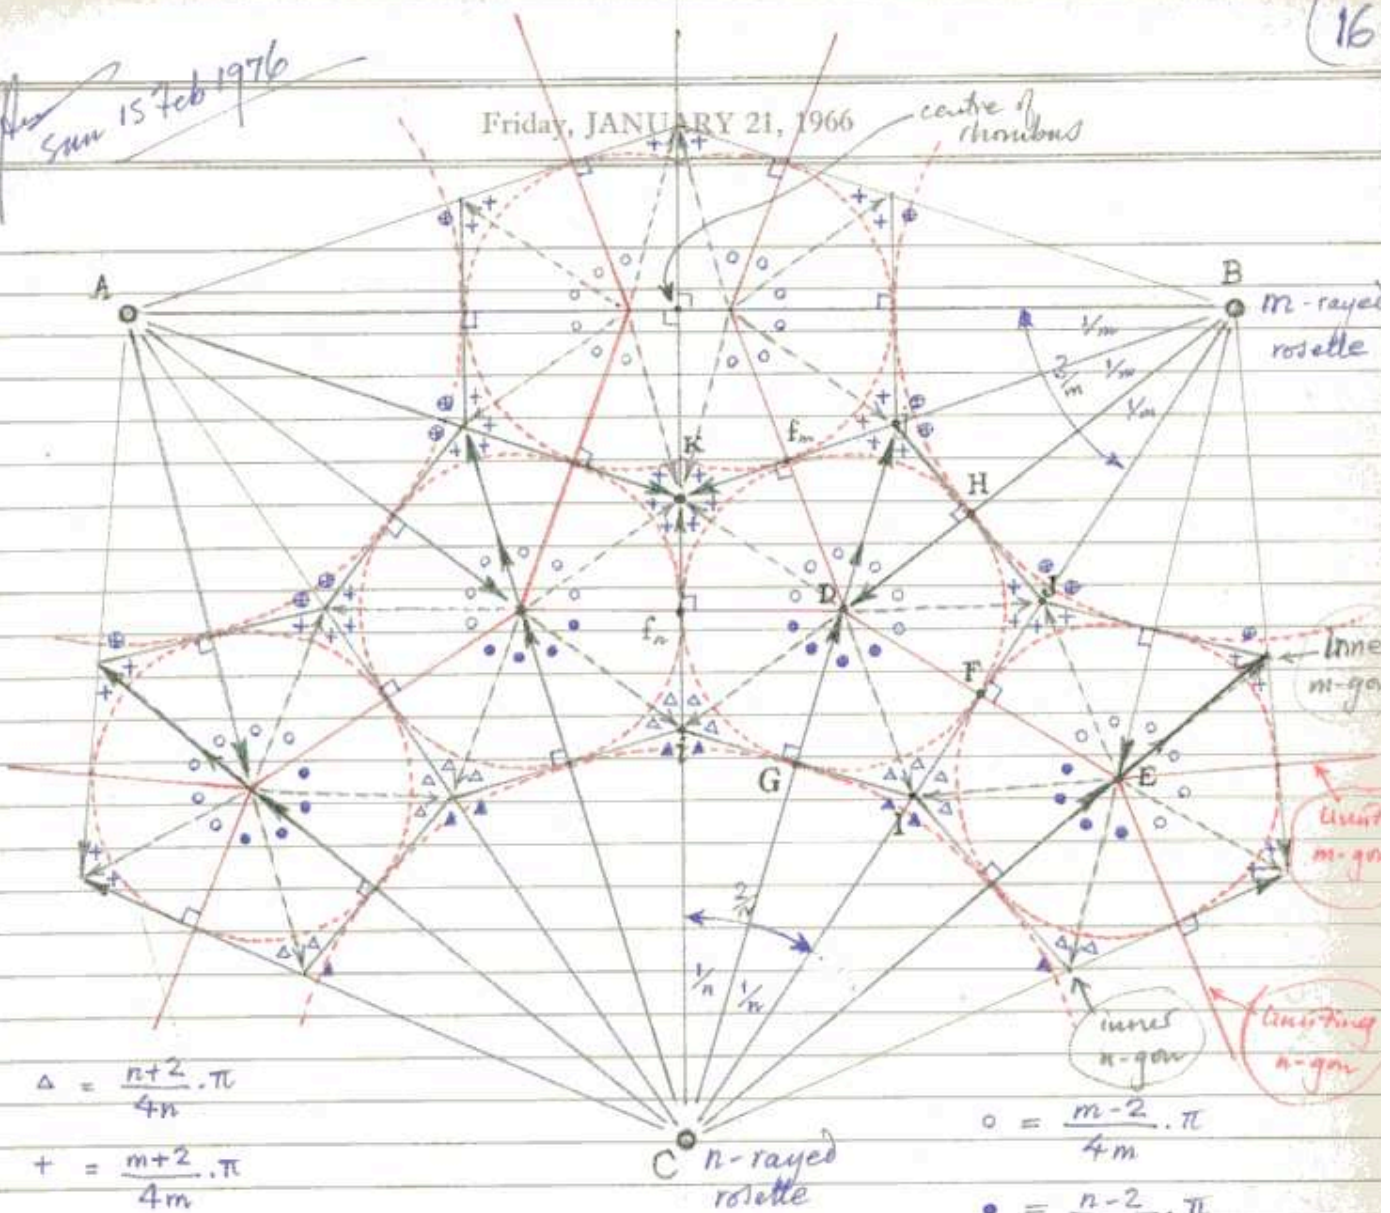 (16
Sun 15 Feb 1976
Friday, JANUARY 21, 1966
centre of
rhombus
A
B
m-rayed
rosette
1/m
2/m 1/m
1/m
K
f_m
H
D
J
f_n
F
G
E
I
m-gon
m-gon
2/n
1/n 1/n
inner
n-gon
n-gon
△ = n+2/4n . π
○ = m-2/4m . π
C n-rayed
rosette
+ = m+2/4m . π
● = n-2 . π